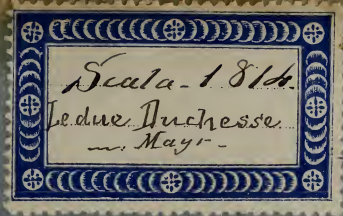 Scala - 1814.
Le due Duchesse
Mayr -